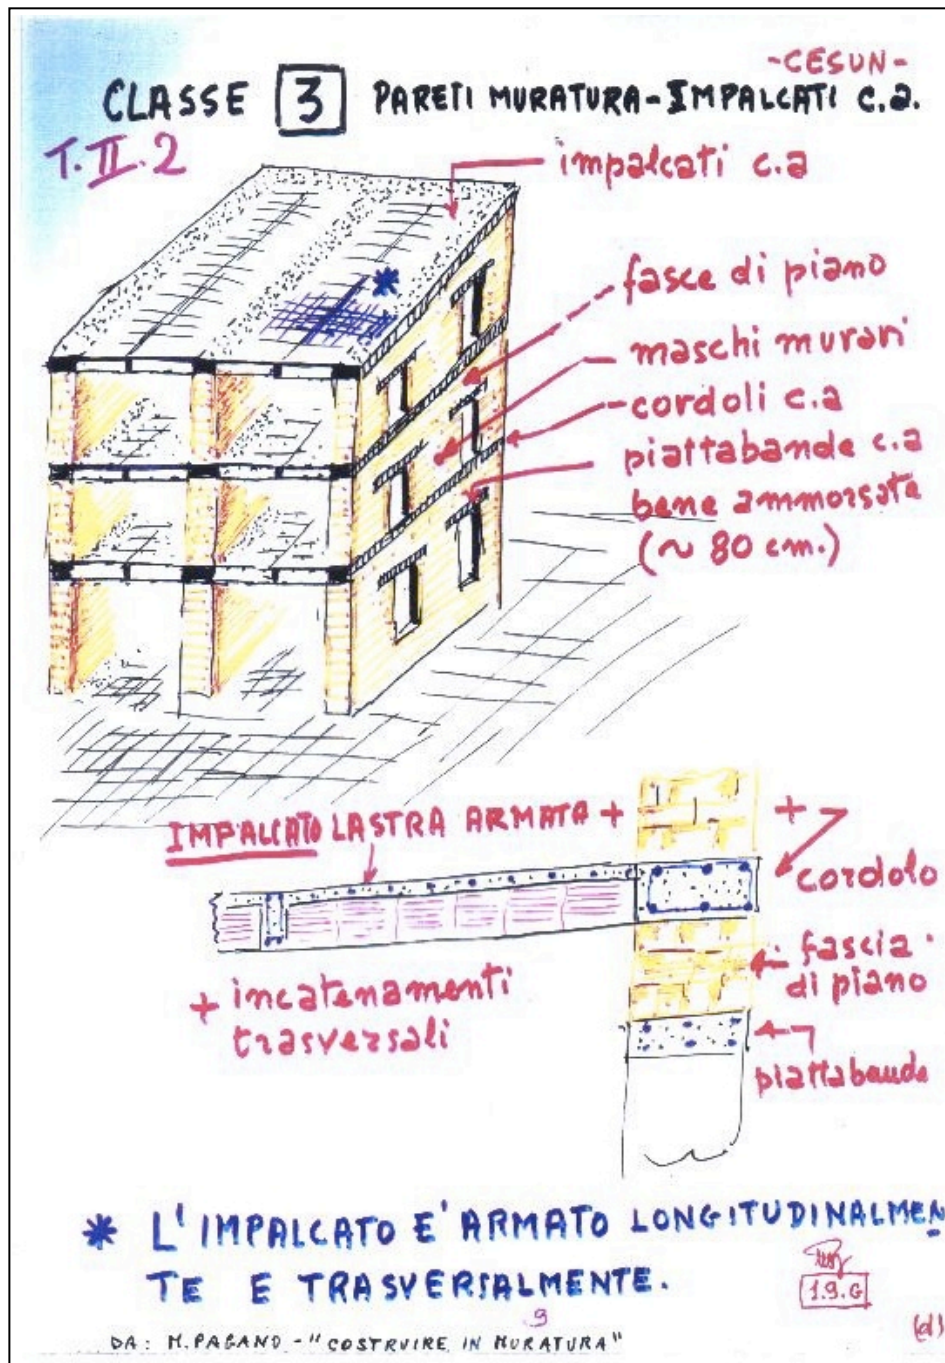 -CESUN-
CLASSE 3 PARETI MURATURA-IMPALCATI c.a.
T.II.2
impalcati c.a
fasce di piano
maschi murari
cordoli c.a
piattabande c.a
bene ammorsate
(~ 80 cm.)
IMPALCATO LASTRA ARMATA +
+
cordolo
fascia
di piano
+ incatenamenti
trasversali
piattabande
* L'IMPALCATO E' ARMATO LONGITUDINALMEN
TE E TRASVERSALMENTE.
1.9.G
9
(d)
DA: M. PAGANO - "COSTRUIRE IN MURATURA"